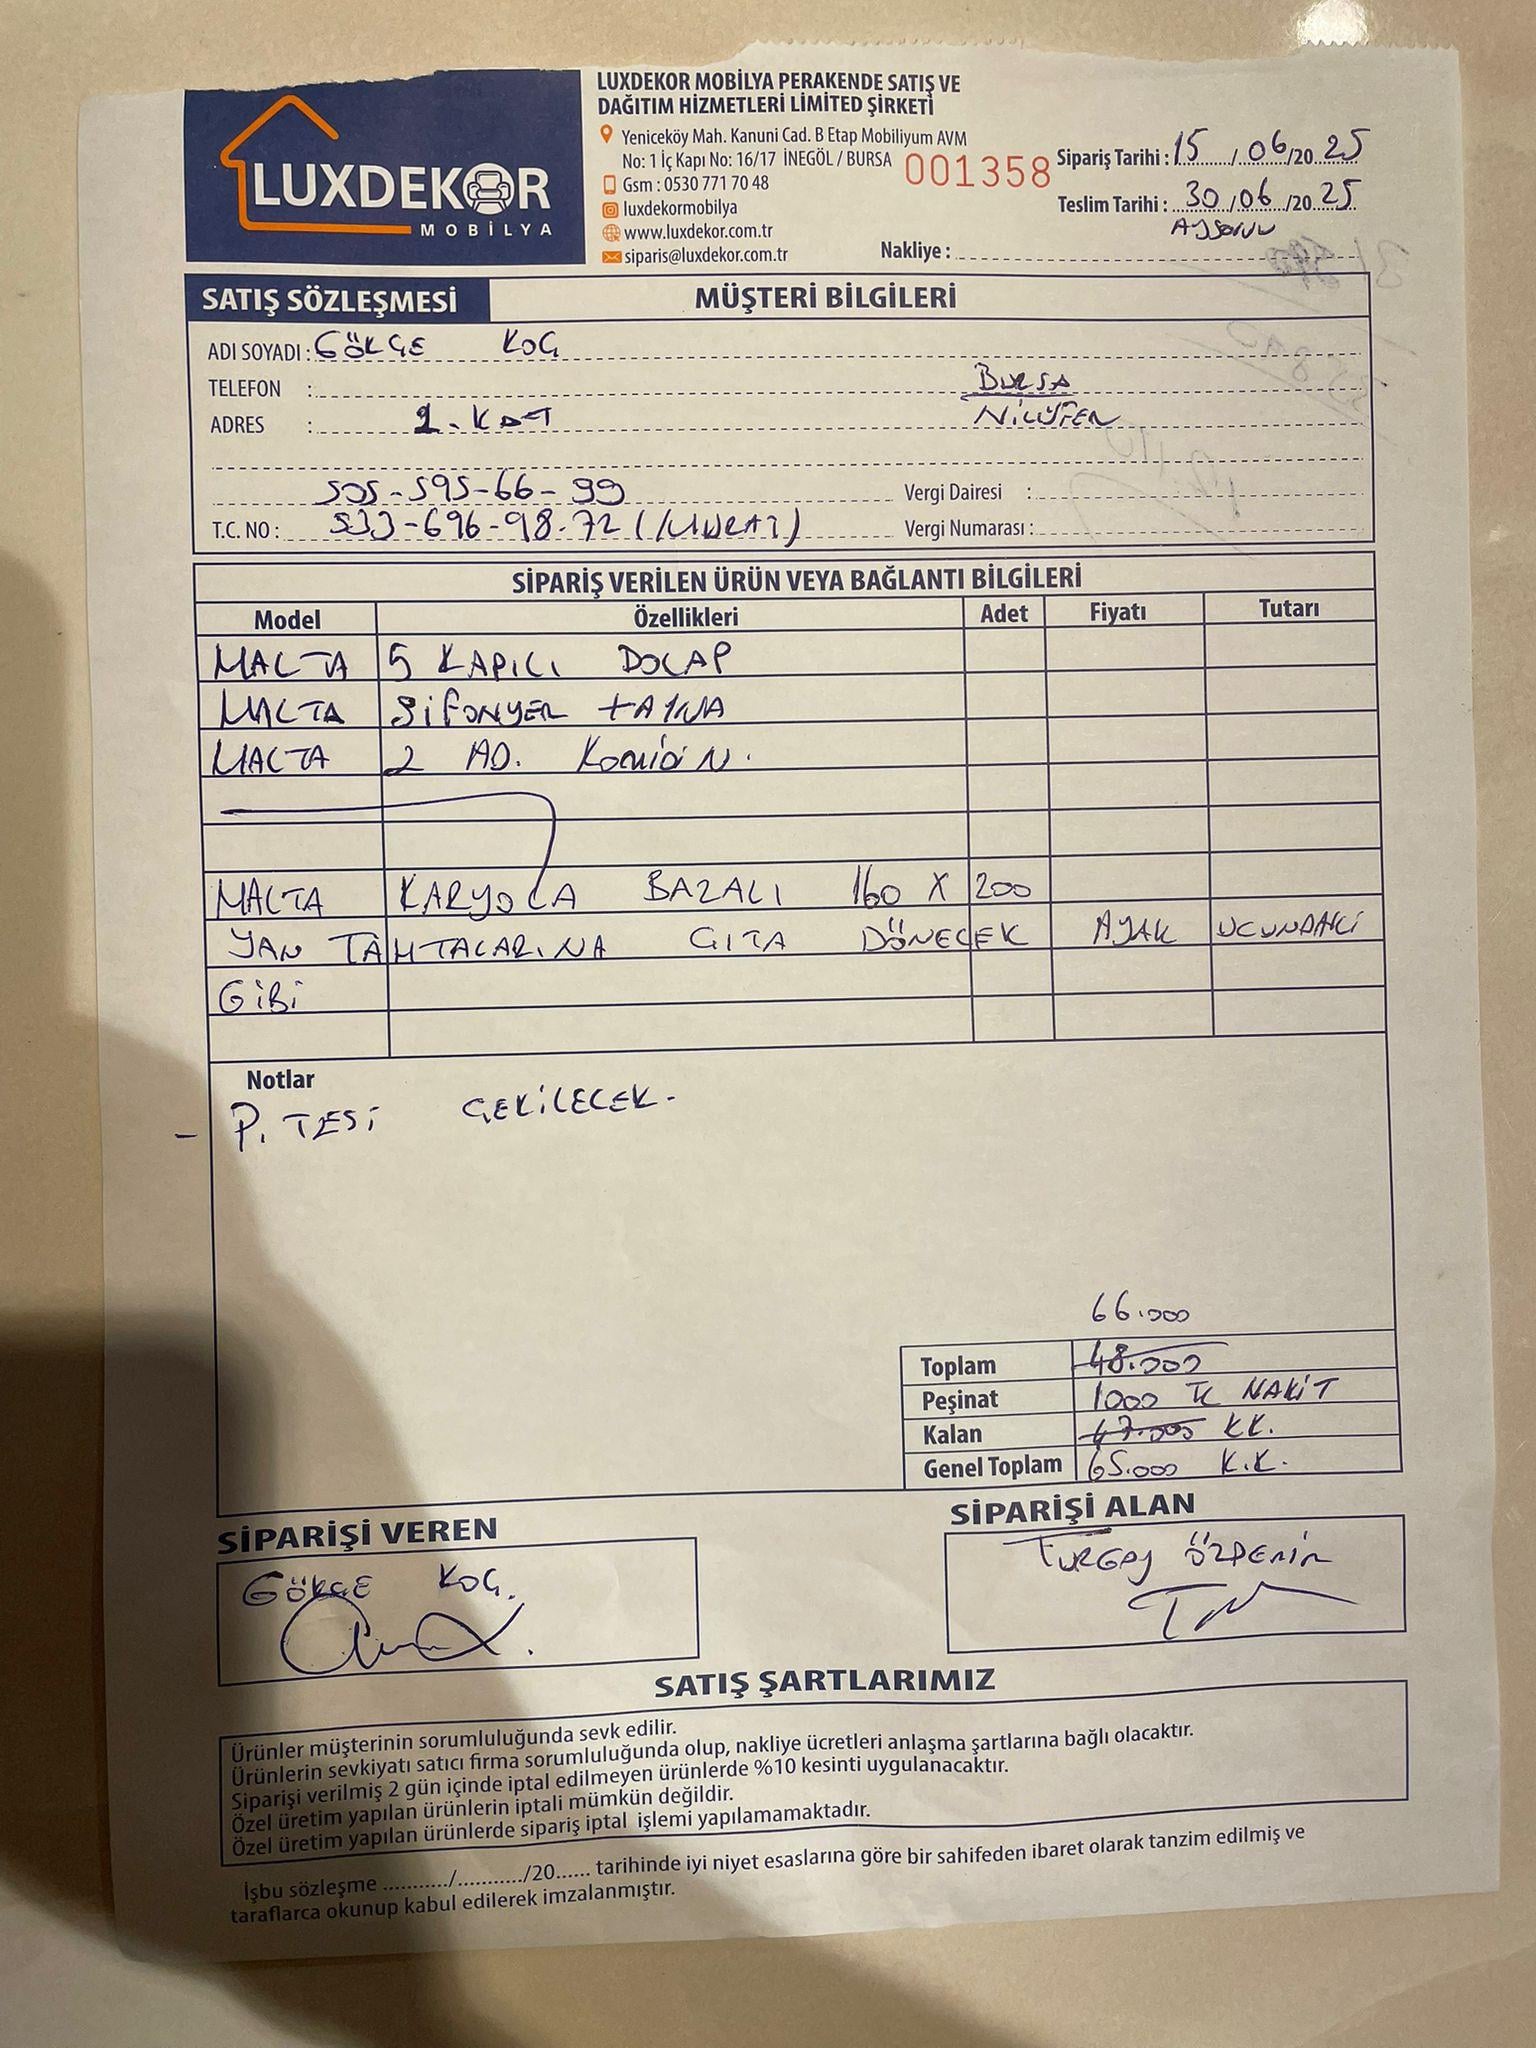 LUXDEKOR
MOBİLYA
LUXDEKOR MOBİLYA PERAKENDE SATIŞ VE
DAĞITIM HİZMETLERİ LİMİTED ŞİRKETİ
Yeniceköy Mah. Kanuni Cad. B Etap Mobiliyum AVM
No: 1 İç Kapı No: 16/17 İNEGÖL / BURSA
Gsm : 0530 771 70 48
luxdekormobilya
www.luxdekor.com.tr
siparis@luxdekor.com.tr
001358
Sipariş Tarihi : 15 / 06 /20 25
Teslim Tarihi : 30 / 06 /20 25
AYSONU
Nakliye :
SATIŞ SÖZLEŞMESİ
MÜŞTERİ BİLGİLERİ
ADI SOYADI : GÖKÇE KOÇ
TELEFON : BURSA
ADRES : 1. KAT NİLÜFER
505-595-66-99 Vergi Dairesi :
T.C. NO : 533-696-98-72 (MURAT) Vergi Numarası :
SİPARİŞ VERİLEN ÜRÜN VEYA BAĞLANTI BİLGİLERİ
Model Özellikleri Adet Fiyatı Tutarı
MALTA 5 KAPILI DOLAP
MALTA ŞİFONYER +AYNA
MALTA 2 AD. KOMİDİN.
MALTA KARYOLA BAZALI 160 X 200
YAN TAHTALARINA ÇITA DÖNECEK AYAK UCUNDAKİ
GİBİ
Notlar
- P. TESİ ÇEKİLECEK.
66.000
Toplam 48.000
Peşinat 1000 TL NAKİT
Kalan 47.000 KK.
Genel Toplam 65.000 K.K.
SİPARİŞİ VEREN
GÖKÇE KOÇ.
SİPARİŞİ ALAN
TURGAY ÖZDEMİR
SATIŞ ŞARTLARIMIZ
Ürünler müşterinin sorumluluğunda sevk edilir.
Ürünlerin sevkiyatı satıcı firma sorumluluğunda olup, nakliye ücretleri anlaşma şartlarına bağlı olacaktır.
Siparişi verilmiş 2 gün içinde iptal edilmeyen ürünlerde %10 kesinti uygulanacaktır.
Özel üretim yapılan ürünlerin iptali mümkün değildir.
Özel üretim yapılan ürünlerde sipariş iptal işlemi yapılamamaktadır.
İşbu sözleşme ........../........../20...... tarihinde iyi niyet esaslarına göre bir sahifeden ibaret olarak tanzim edilmiş ve
taraflarca okunup kabul edilerek imzalanmıştır.